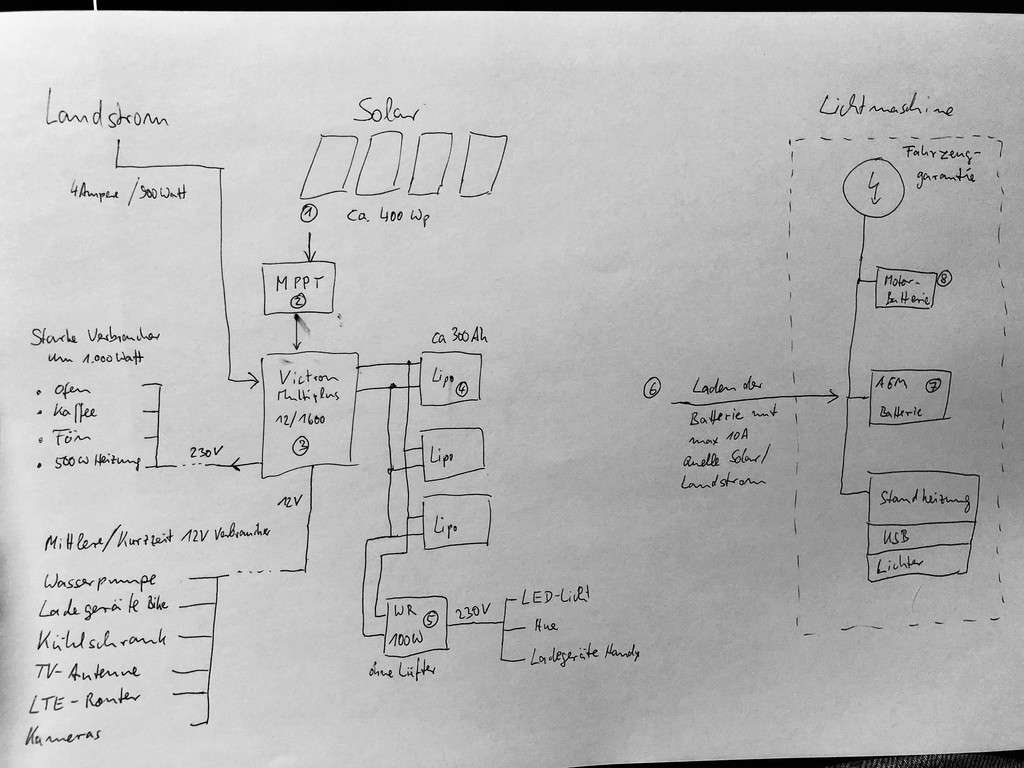 Landstrom
4 Ampere / 900 Watt
Solar
①
ca. 400 Wp
MPPT
②
Starke Verbraucher
um 1.000 Watt
• Ofen
• Kaffee
• Fön
• 500W Heizung
230V
Victron
Multiplus
12/1600
③
12V
ca 300 Ah
Lipo ④
Lipo
Lipo
Mittlere/Kurzzeit 12V Verbraucher
Wasserpumpe
Ladegeräte Bike
Kühlschrank
TV-Antenne
LTE-Router
Kameras
WR ⑤
100W
ohne Lüfter
230V
LED-Licht
Hue
Ladegeräte Handy
⑥ Laden der
Batterie mit
max 10A
quelle Solar/
Landstrom
Lichtmaschine
Fahrzeug-
garantie
Motor-
Batterie
⑧
AGM ⑦
Batterie
Standheizung
USB
Lichter